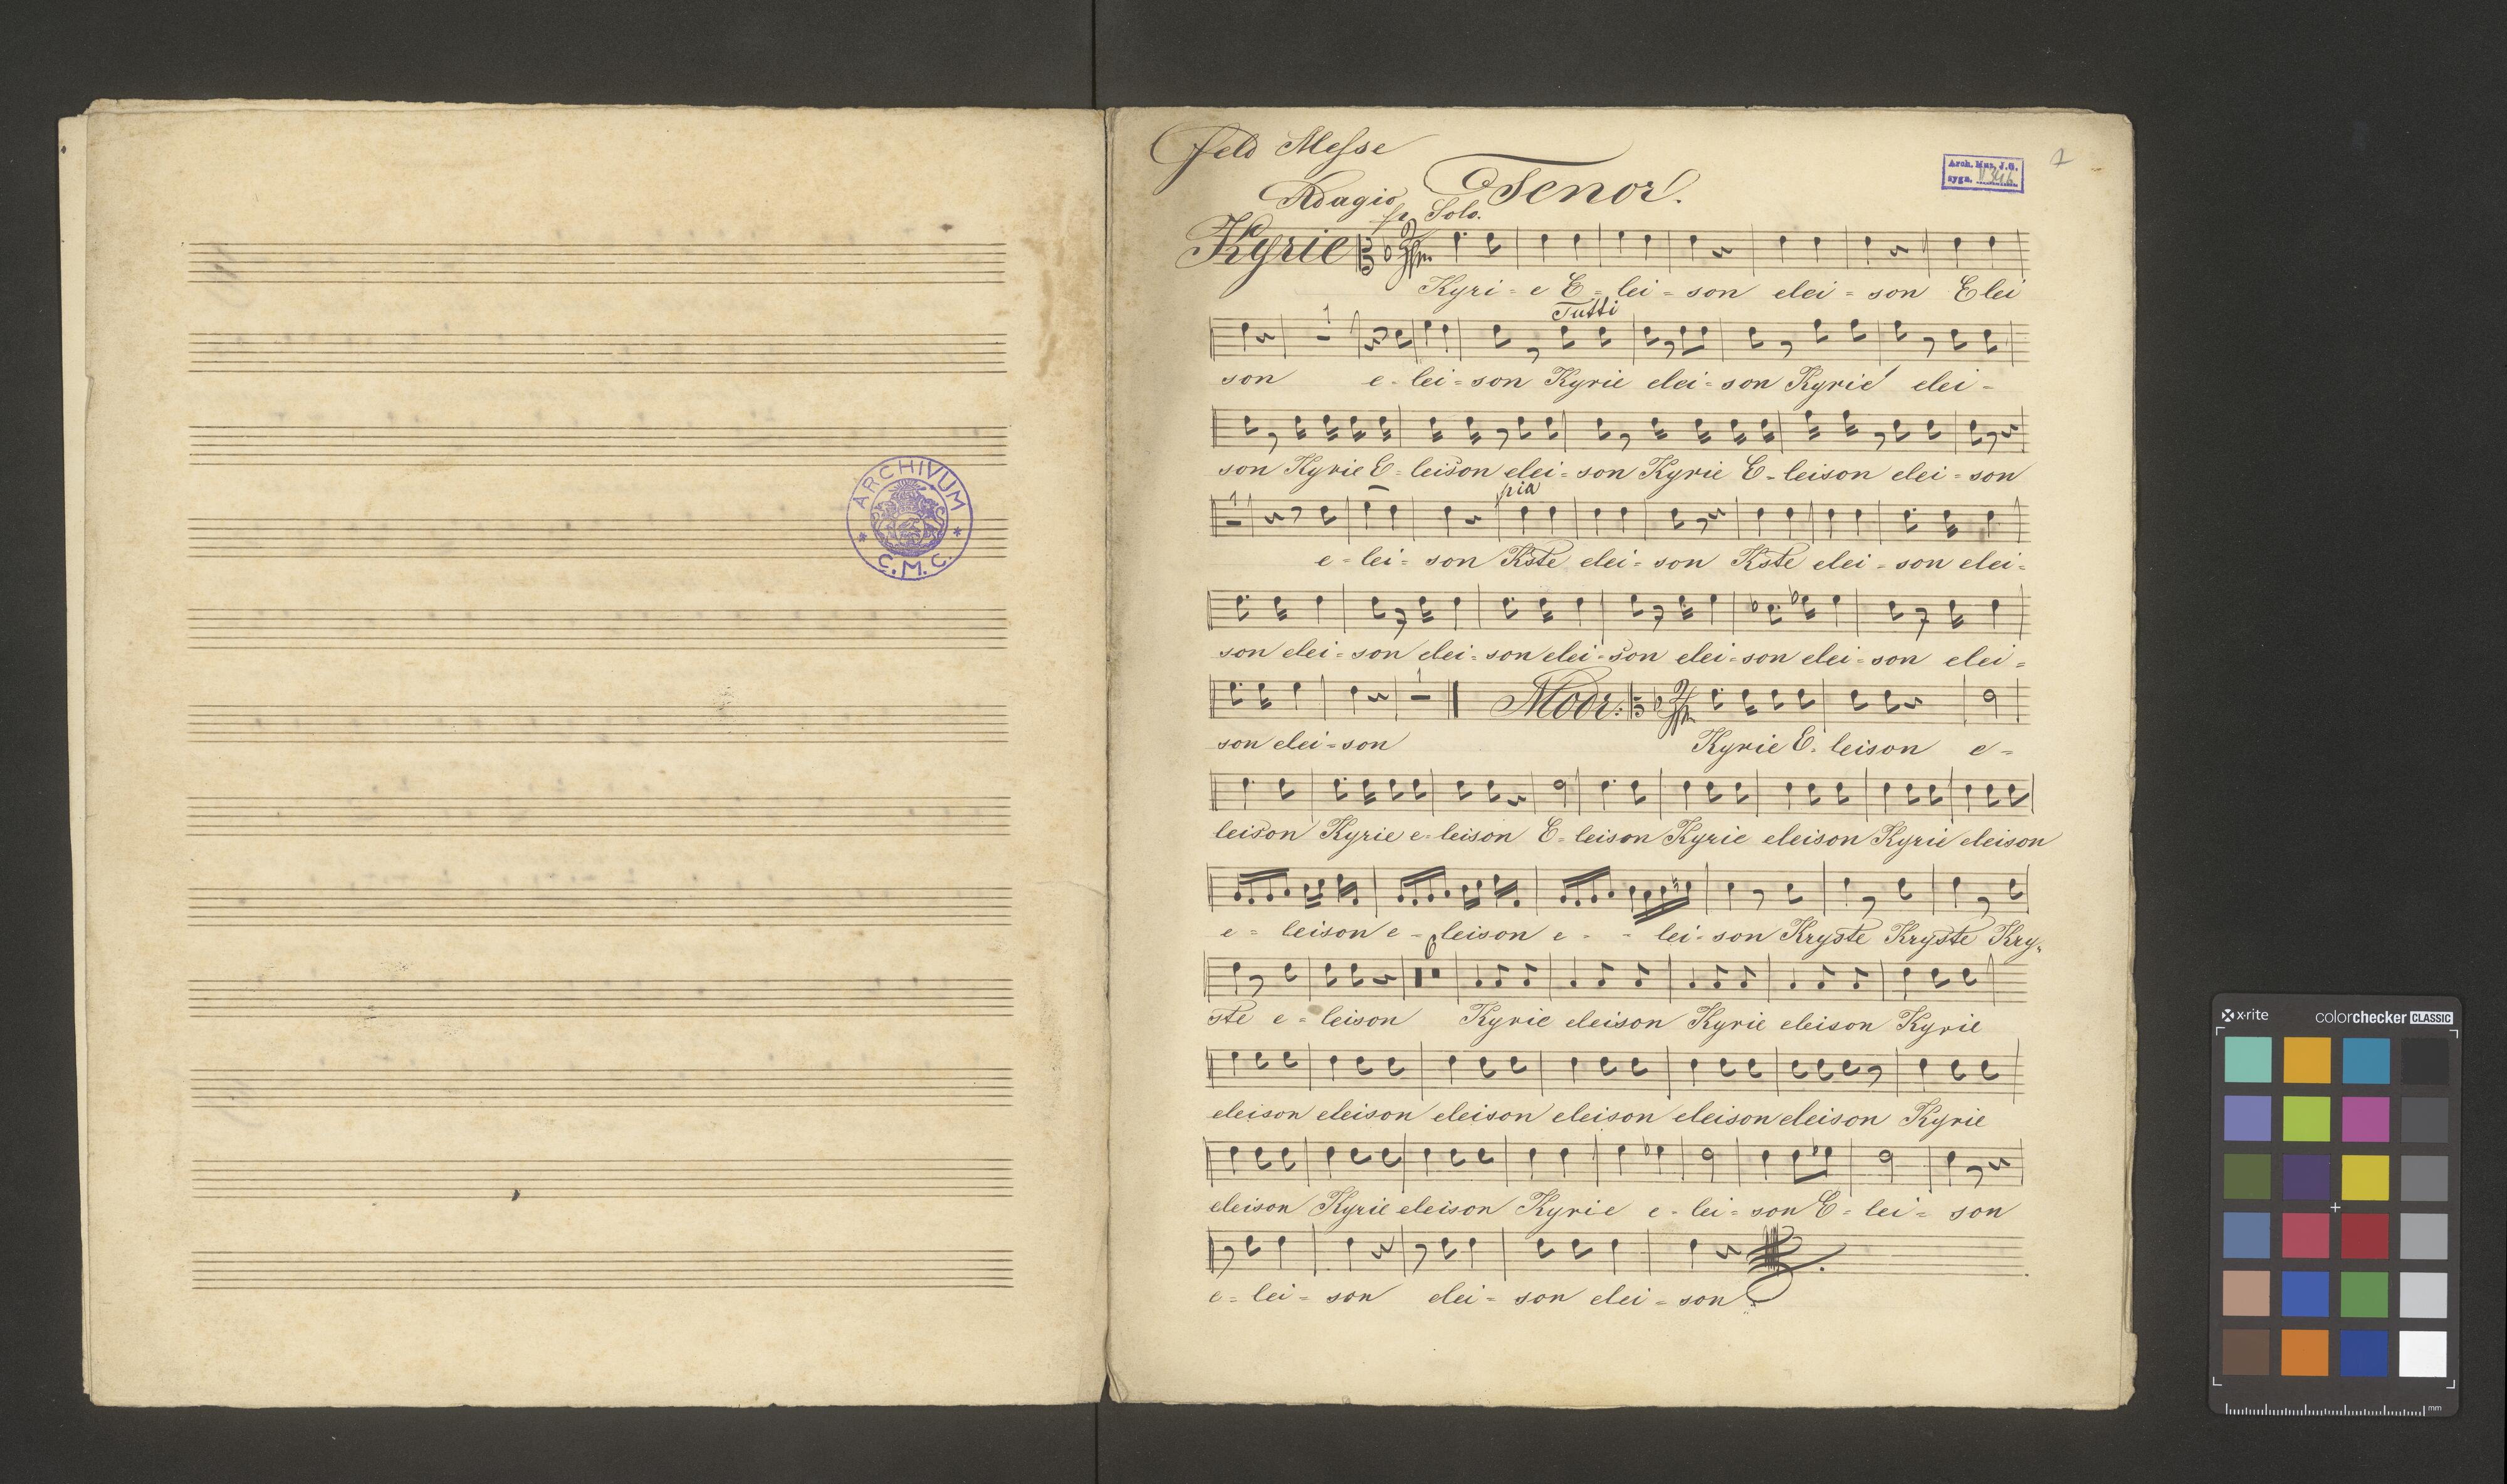 ARCHIVUM
* C.M.C. *
Feld Messe
Tenor.
Arch. Muz. J.G.
sygn.
Adagio
fe Solo.
Kyrie
Kyri - e E - lei - son elei - son Elei
1
Tutti
son e - lei - son Kyrie elei - son Kyrie elei -
son Kyrie E - leison elei - son Kyrie E - leison elei - son
1
pia
e - lei - son Kste elei - son Kste elei - son elei -
son elei - son elei - son elei - son elei - son elei - son elei -
1
Modr:
son elei - son Kyrie E - leison e -
leison Kyrie e - leison E - leison Kyrie eleison Kyrie eleison
e - leison e - leison e - - lei - son Kryste Kryste Kry,
6
ste e - leison Kyrie eleison Kyrie eleison Kyrie
eleison eleison eleison eleison eleison eleison Kyrie
eleison Kyrie eleison Kyrie e - lei - son E - lei - son
e - lei - son elei - son elei - son
x-rite
colorchecker CLASSIC
mm